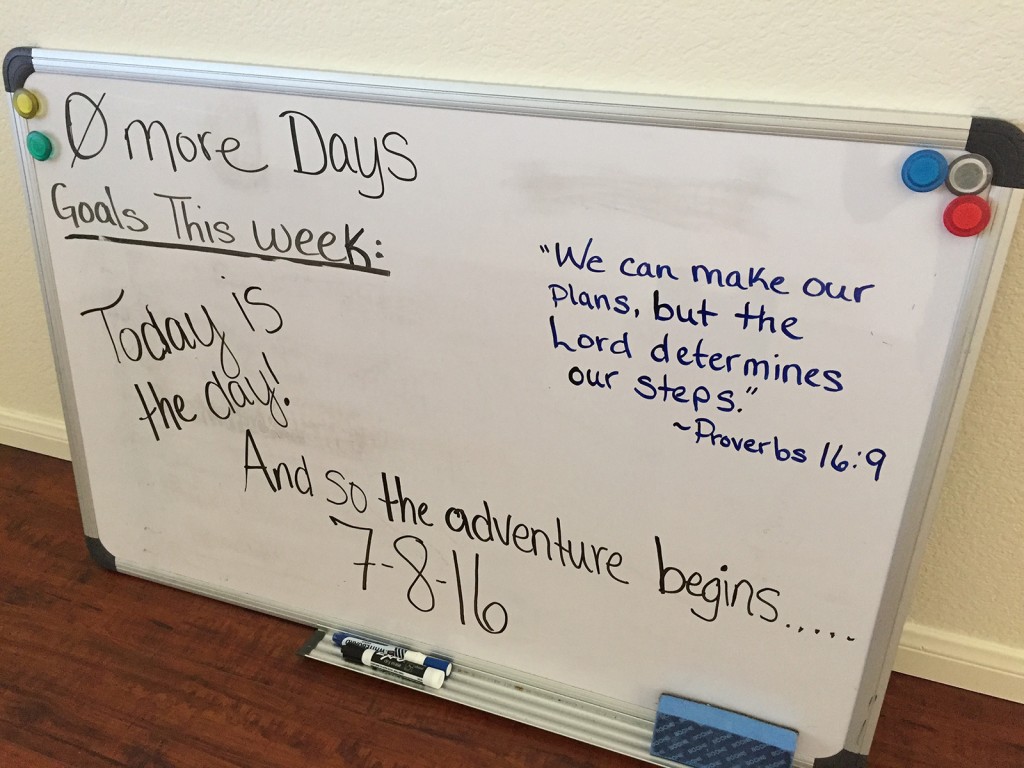 Ø more Days
Goals This week:
Today is
the day!
"We can make our
plans, but the
Lord determines
our steps."
~Proverbs 16:9
And so the adventure begins.....
7-8-16